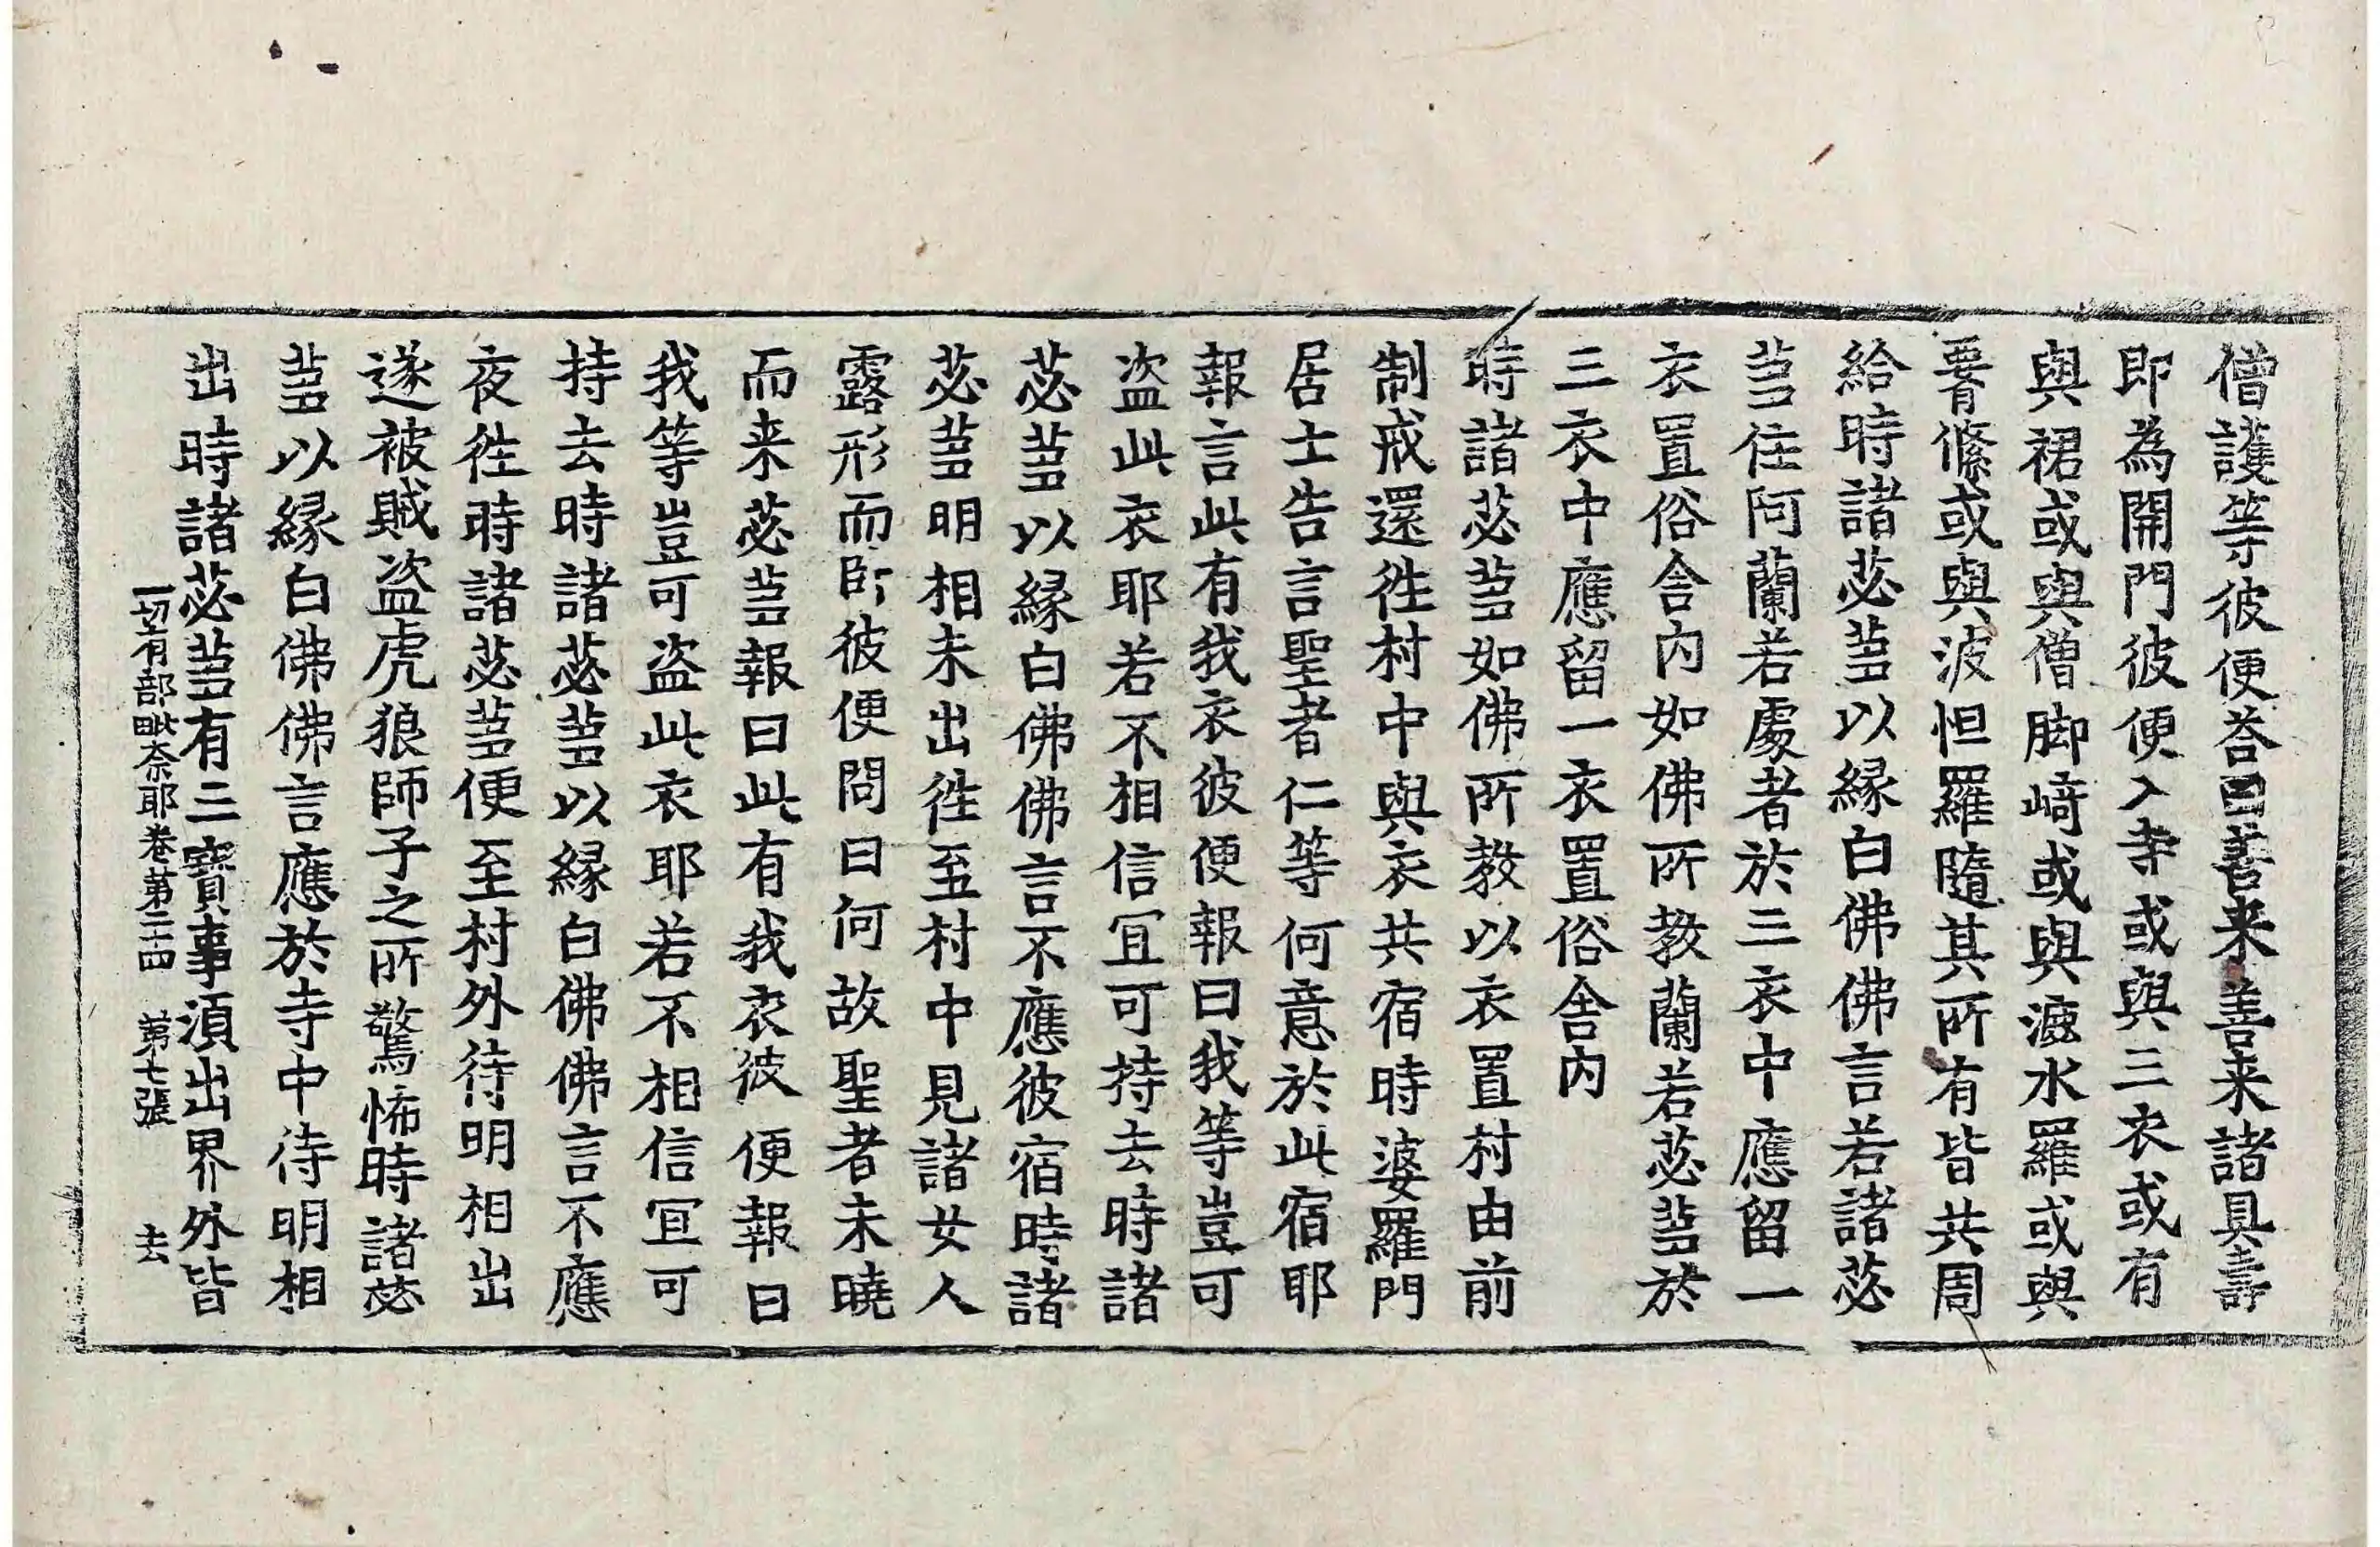 僧護等彼便荅曰善来善来諸具壽
即為開門彼便入寺或與三衣或有
與裙或與僧脚崎或與漉水羅或與
䙅絛或與波怛羅隨其所有皆共周
給時諸苾蒭以緣白佛佛言若諸苾
蒭住阿蘭若處者於三衣中應留一
衣置俗舍內如佛所教蘭若苾蒭於
三衣中應留一衣置俗舍內
時諸苾蒭如佛所教以衣置村由前
制戒還徃村中與衣共宿時婆羅門
居士告言聖者仁等何意於此宿耶
報言此有我衣彼便報曰我等豈可
盜此衣耶若不相信冝可持去時諸
苾蒭以緣白佛佛言不應彼宿時諸
苾蒭明相未出徃至村中見諸女人
露形而卧彼便問曰何故聖者未曉
而来苾蒭報曰此有我衣彼便報曰
我等豈可盜此衣耶若不相信冝可
持去時諸苾蒭以緣白佛佛言不應
夜徃時諸苾蒭便至村外待明相出
遂被賊盜虎狼師子之所驚怖時諸苾
蒭以緣白佛佛言應於寺中待明相
出時諸苾蒭有三寶事湏出界外皆
一切有部毗奈耶卷第二十四 第七張 去